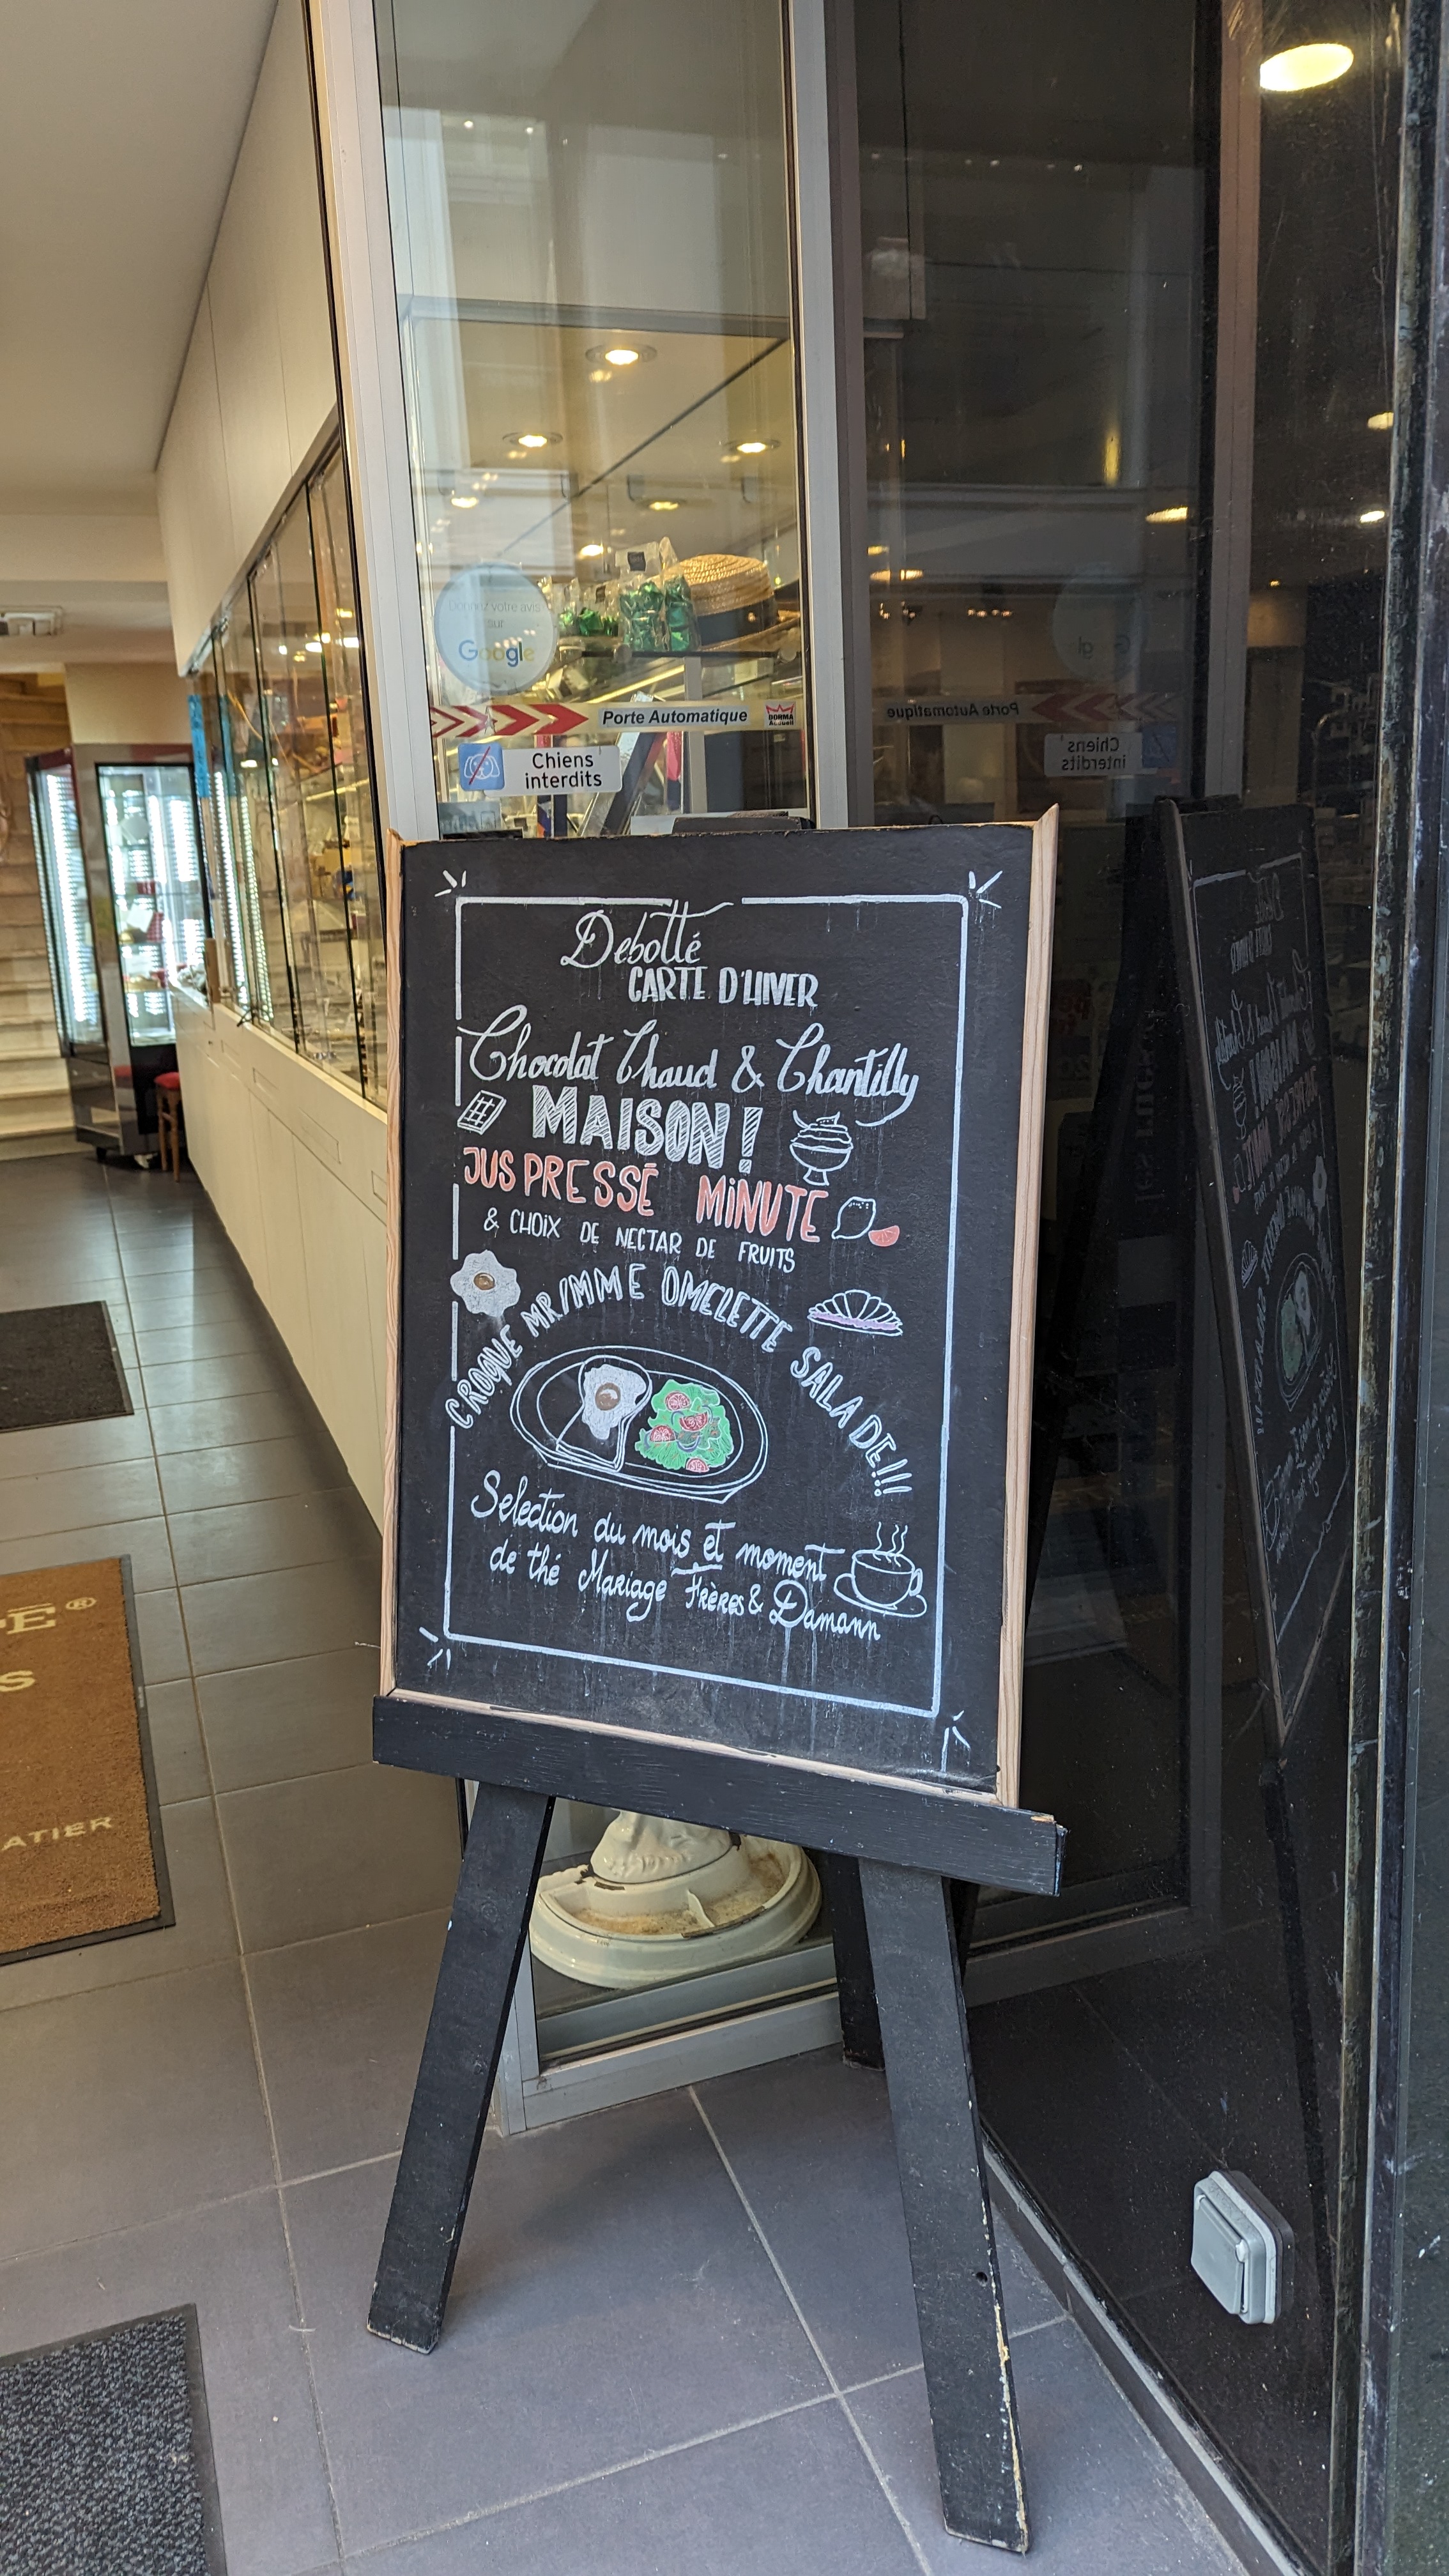 Donnez votre avis
sur
Google
Porte Automatique
DORMA
Accueil
Chiens
interdits
Debotté
CARTE D'HIVER
Chocolat Chaud & Chantilly
MAISON!
JUS PRESSÉ MINUTE
& CHOIX DE NECTAR DE FRUITS
CROQUE MR/MME OMELETTE SALADE!!!
Selection du mois et moment
de thé Mariage Frères & Damann
É®
S
ATIER